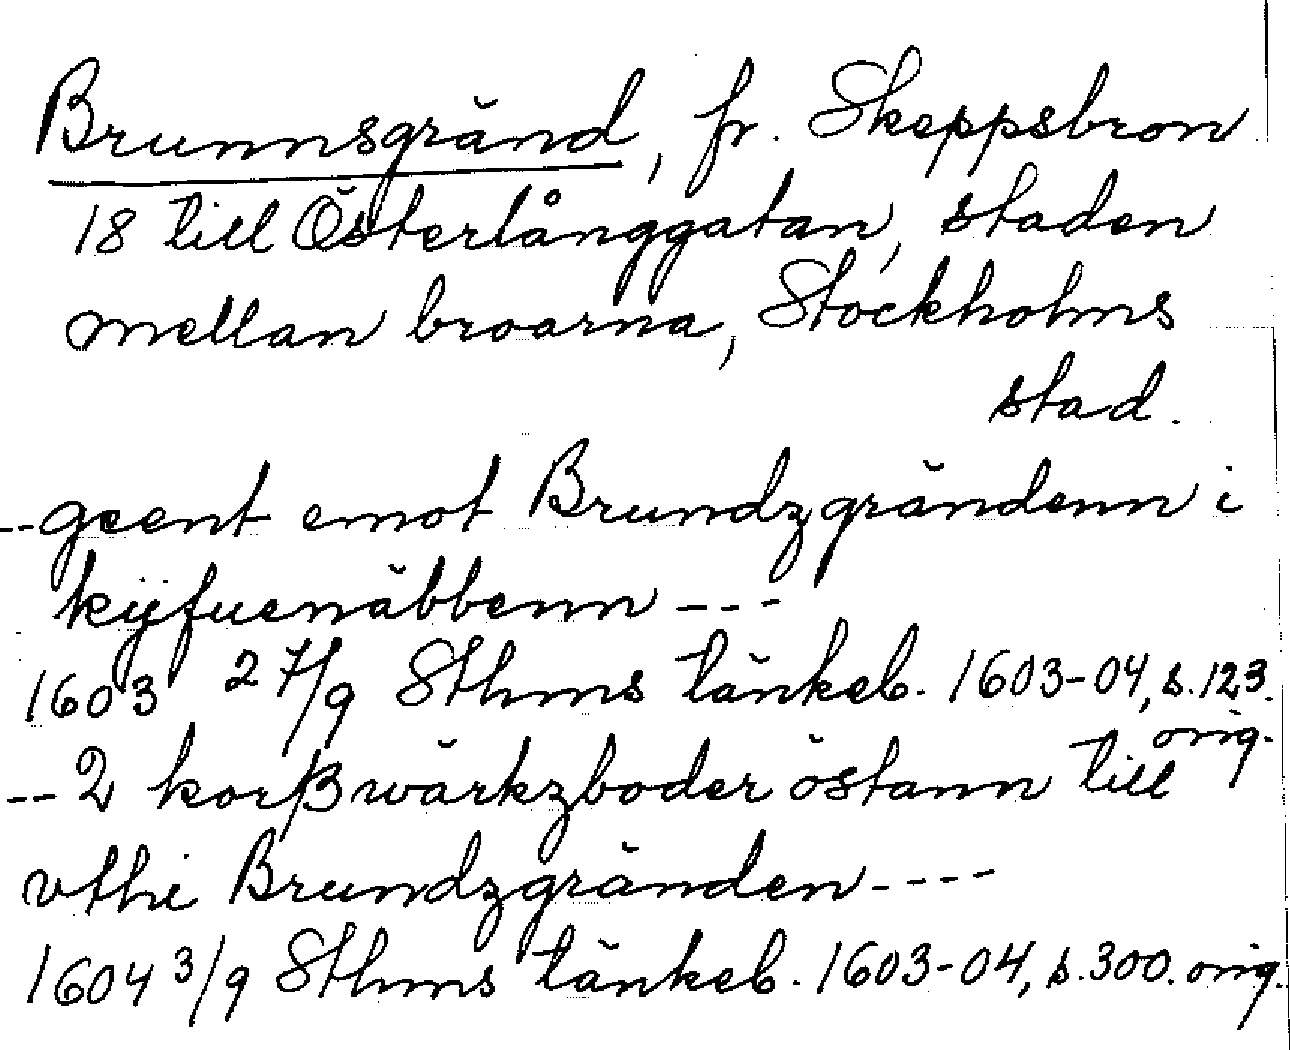 Brunnsgränd, fr. Skeppsbron
18 till Österlånggatan, staden
mellan broarna, Stockholms
stad.
--geent emot Brundzgrändenn i
kijfuenäbbenn ---
1603 27/9 Sthms tänkeb. 1603-04, s. 123.
orig.
--2 korßwärkzboder östann till
vthi Brundzgränden----
1604 3/9 Sthms tänkeb. 1603-04, s. 300. orig.